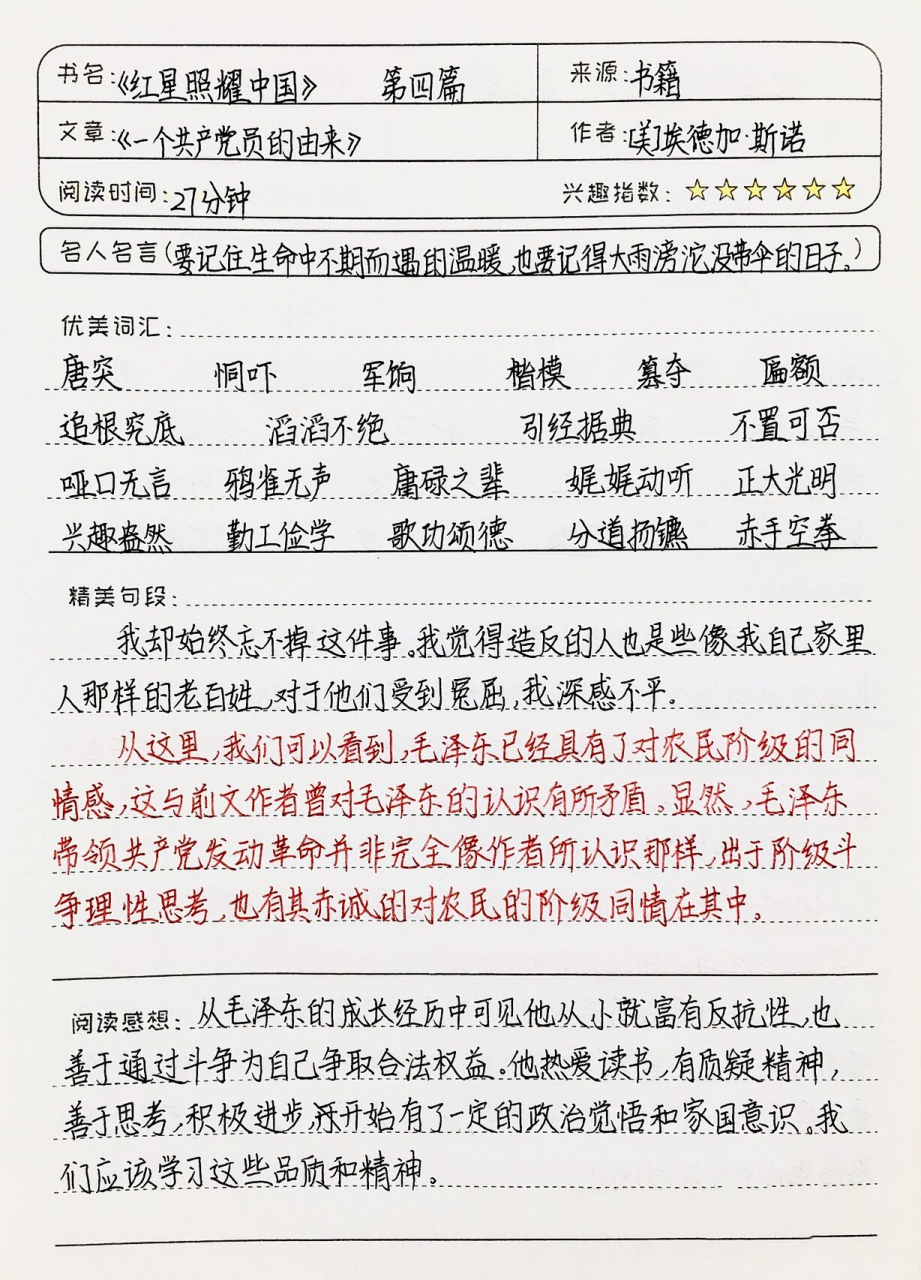 书名:《红星照耀中国》 第四篇 来源:书籍
文章:《一个共产党员的由来》 作者:[美]埃德加·斯诺
阅读时间:27分钟 兴趣指数:☆☆☆☆☆☆
名人名言(要记住生命中不期而遇的温暖,也要记得大雨滂沱没带伞的日子。)
优美词汇:
唐突 恫吓 军饷 楷模 篡夺 匾额
追根究底 滔滔不绝 引经据典 不置可否
哑口无言 鸦雀无声 庸碌之辈 娓娓动听 正大光明
兴趣盎然 勤工俭学 歌功颂德 分道扬镳 赤手空拳
精美句段:
我却始终忘不掉这件事。我觉得造反的人也是些像我自己家里
人那样的老百姓,对于他们受到冤屈,我深感不平。
从这里,我们可以看到,毛泽东已经具有了对农民阶级的同
情感,这与前文作者曾对毛泽东的认识有所矛盾。显然,毛泽东
带领共产党发动革命并非完全像作者所认识那样,出于阶级斗
争理性思考,也有其赤诚的对农民的阶级同情在其中。
阅读感想:从毛泽东的成长经历中可见他从小就富有反抗性,也
善于通过斗争为自己争取合法权益。他热爱读书,有质疑精神,
善于思考,积极进步,并开始有了一定的政治觉悟和家国意识。我
们应该学习这些品质和精神。